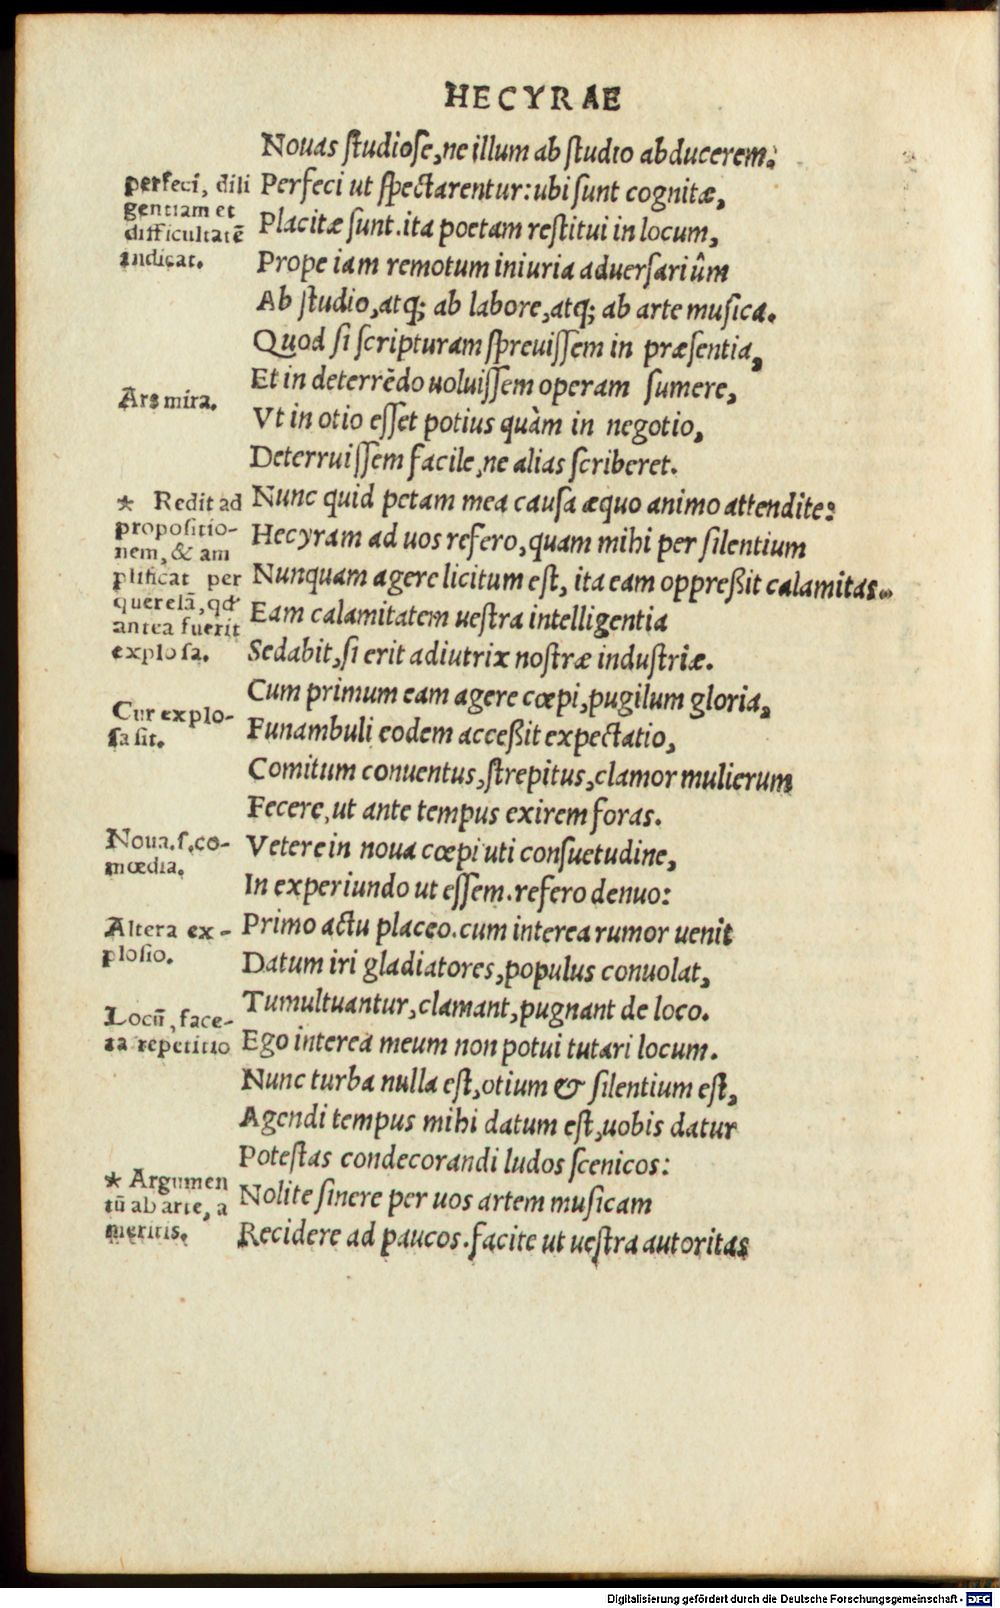 HECYRAE
Nouas ſtudioſe, ne illum ab ſtudio abducerem.
perfecī, dili
gentiam et
difficultatē
indicat.
Perfeci ut ſpectarentur: ubi ſunt cognitæ,
Placitæ ſunt. ita poetam reſtitui in locum,
Prope iam remotum iniuria aduerſariûm
Ab ſtudio, atq; ab labore, atq; ab arte muſica.
Quod ſi ſcripturam ſpreuiſſem in præſentia,
Et in deterrēdo uoluiſſem operam ſumere,
Ars mira.
Vt in otio eſſet potius quàm in negotio,
Deterruiſſem facile, ne alias ſcriberet.
* Redit ad
propoſitio-
nem, & am
plificat per
querelā, qđ
antea fuerit
exploſa.
Nunc quid petam mea cauſa æquo animo attendite:
Hecyram ad uos refero, quam mihi per ſilentium
Nunquam agere licitum eſt, ita eam oppreßit calamitas.
Eam calamitatem ueſtra intelligentia
Sedabit, ſi erit adiutrix noſtræ induſtriæ.
Cum primum eam agere cœpi, pugilum gloria,
Cur explo-
ſa ſit.
Funambuli eodem acceßit expectatio,
Comitum conuentus, ſtrepitus, clamor mulierum
Fecere, ut ante tempus exirem foras.
Noua. ſ. co-
mœdia.
Vetere in noua cœpi uti conſuetudine,
In experiundo ut eſſem. refero denuo:
Altera ex-
ploſio.
Primo actu placeo. cum interea rumor uenit
Datum iri gladiatores, populus conuolat,
Tumultuantur, clamant, pugnant de loco.
Locū, face-
ta repetitio
Ego interea meum non potui tutari locum.
Nunc turba nulla eſt, otium & ſilentium eſt,
Agendi tempus mihi datum eſt, uobis datur
Poteſtas condecorandi ludos ſcenicos:
* Argumen
tū ab arte, a
meritis.
Nolite ſinere per uos artem muſicam
Recidere ad paucos. facite ut ueſtra autoritas
Digitalisierung gefördert durch die Deutsche Forschungsgemeinschaft - DFG